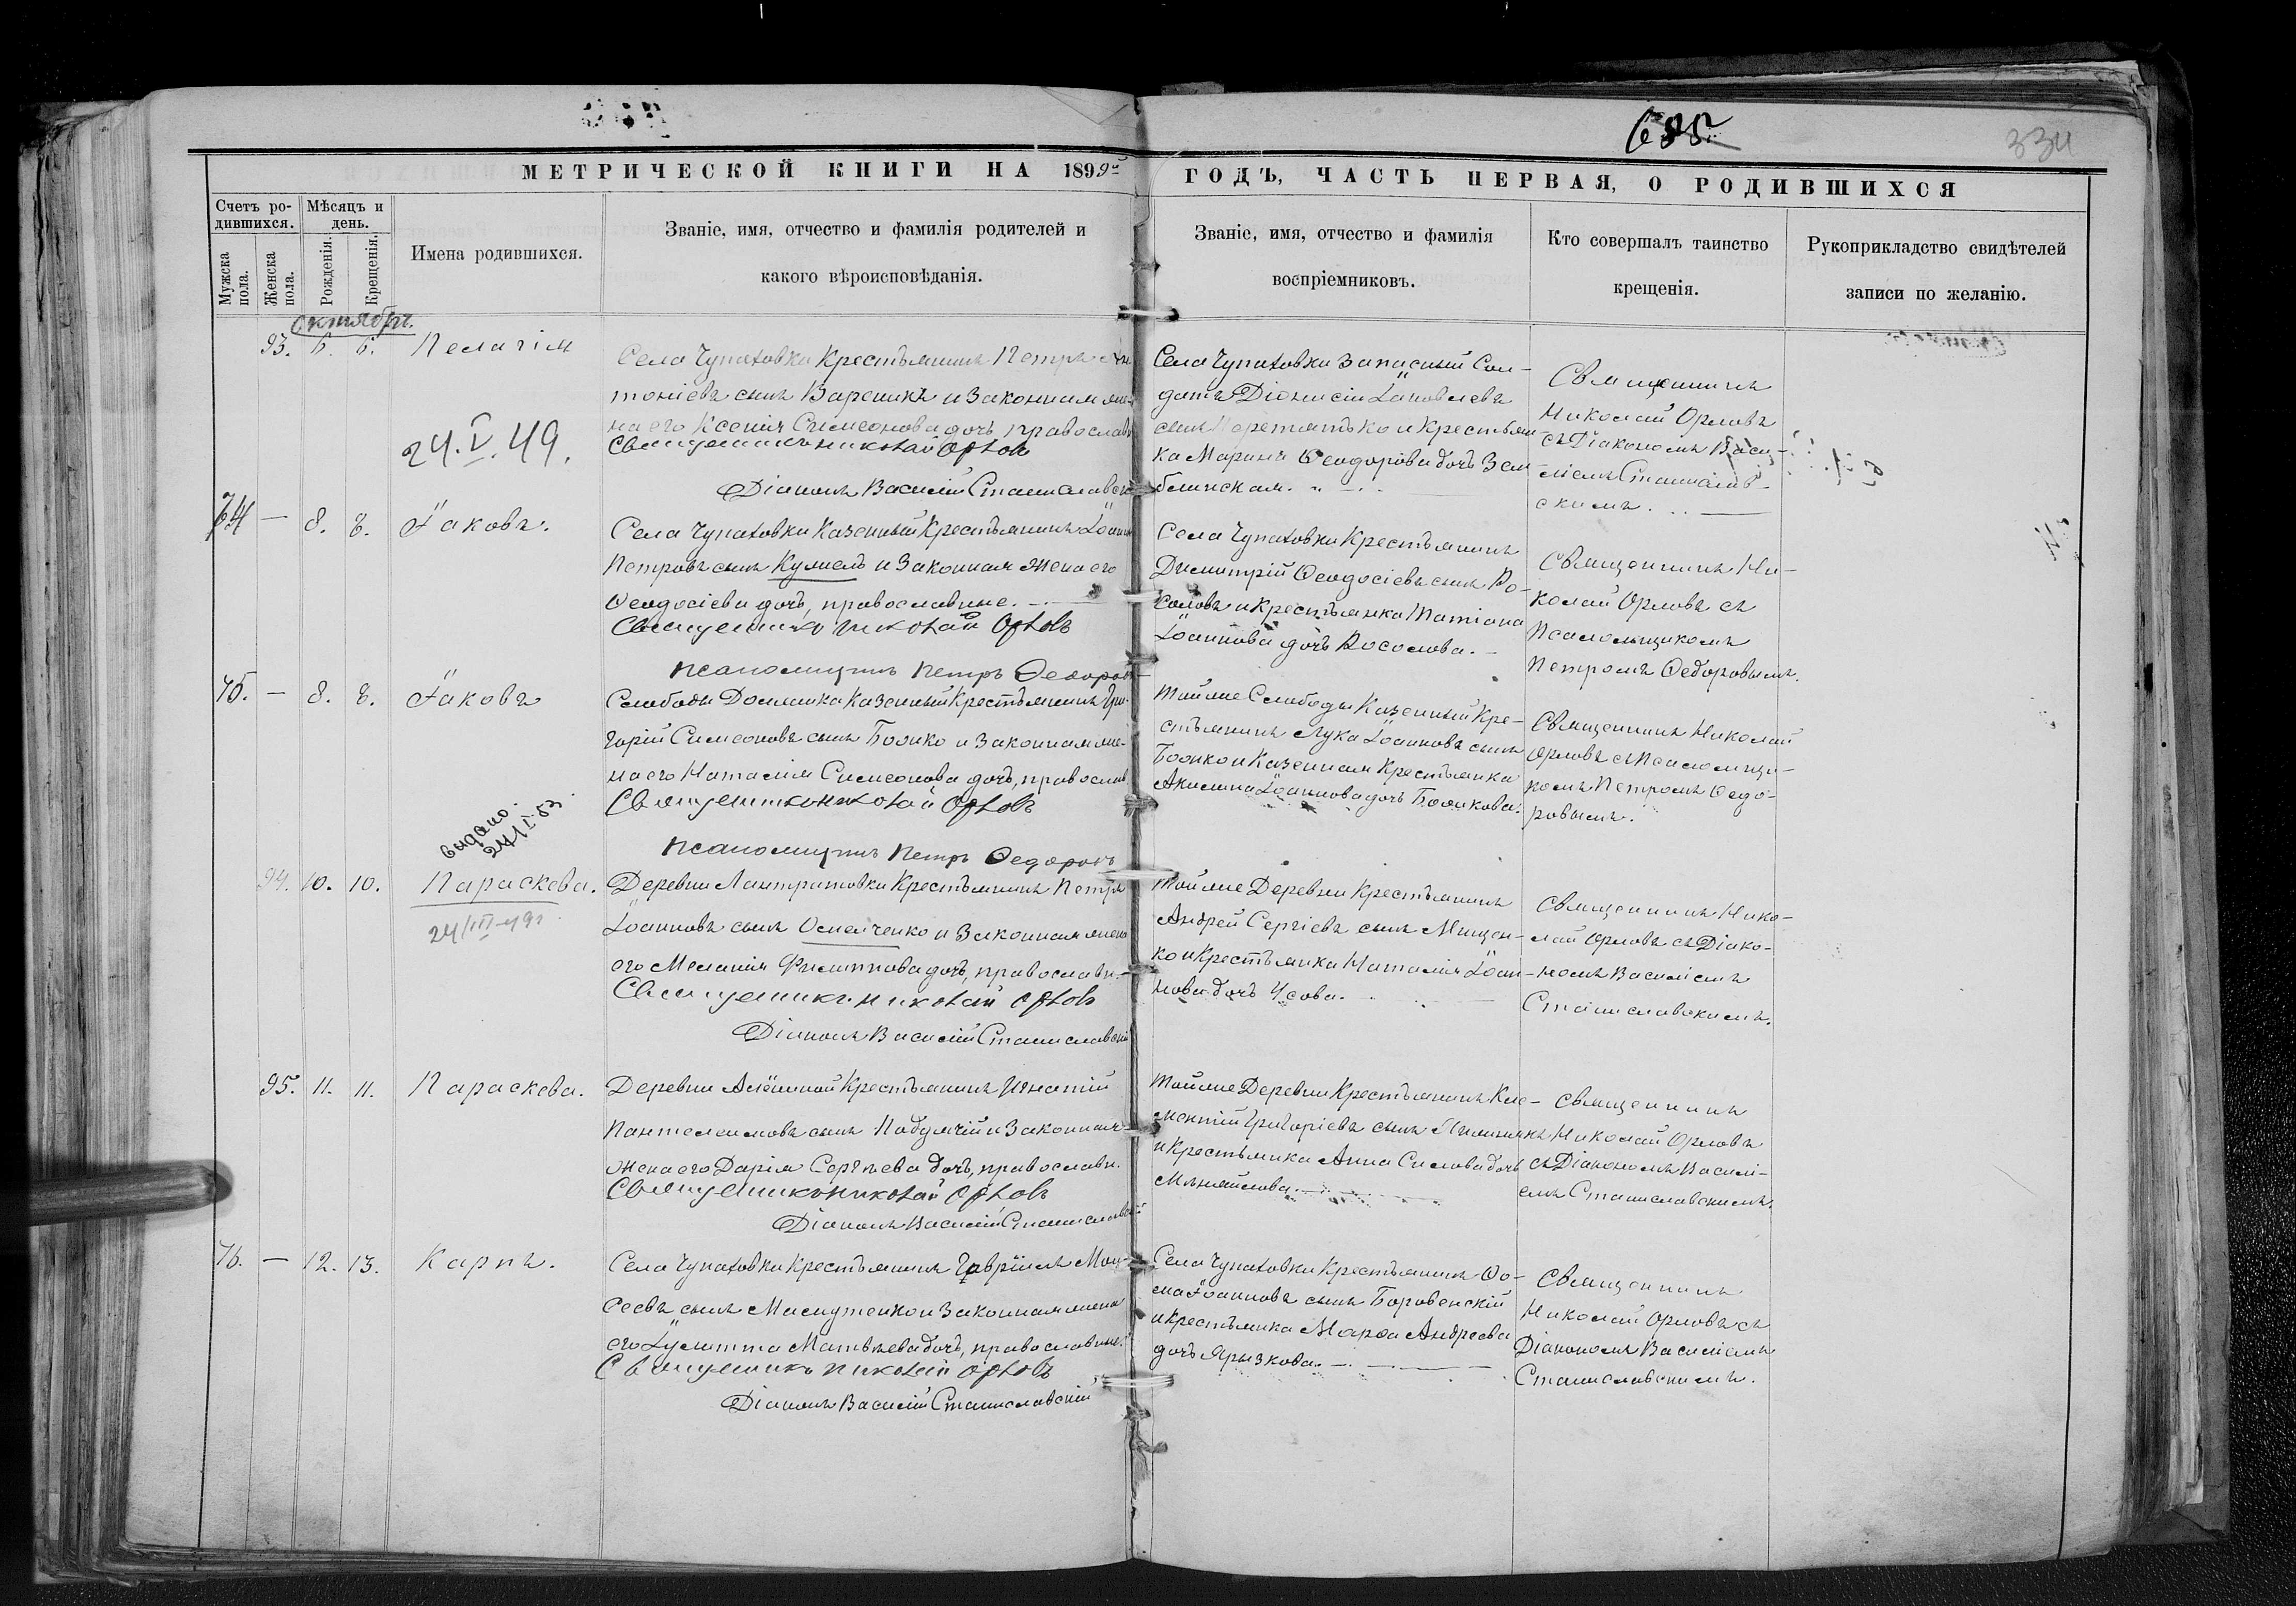 685
334
МЕТРИЧЕСКОЙ КНИГИ НА 1899й ГОДЪ, ЧАСТЬ ПЕРВАЯ, О РОДИВШИХСЯ
Счетъ ро-
дившихся.
Мужска
пола.
Женска
пола.
Мѣсяцъ и
день.
Рожденія.
Крещенія.
Имена родившихся.
Званіе, имя, отчество и фамилія родителей и
какого вѣроисповѣданія.
Званіе, имя, отчество и фамилія
воспріемниковъ.
Кто совершалъ таинство
крещенія.
Рукоприкладство свидѣтелей
записи по желанію.
Октябрь.
93. 6. 6. Пелагія
24.V.49.
Села Чупаховки Крестьянинъ Петръ Ан-
тоніевъ сынъ Вареникъ и законная же-
на его Ксенія Симеонова дочь, православн.
Священникъ Николай Орловъ
Діаконъ Василій Станиславскій
Села Чупаховки Запасный Сол-
датъ Діонисій Іаковлевъ
сынъ и Крестьян-
ка Марина Ѳеодорова дочь Зем-
блинская.
Священникъ
Николай Орловъ
съ Діакономъ Васи-
ліемъ Станислав-
скимъ.
74 — 8. 8. Іаковъ.
Села Чупаховки Казенный Крестьянинъ Іоаннъ
Петровъ сынъ Кумель и Законная Жена его
Ѳеодосіева дочь, православные.
Священникъ Николай Орловъ
Псаломщикъ Петръ Ѳедоровъ
Села Чупаховки Крестьянинъ
Димитрій Ѳеодосіевъ сынъ Ро-
солов и Крестьянка Татіана
Іоаннова дочь Росолова.
Священникъ Ни-
колай Орловъ съ
Псаломщикомъ
Петромъ Ѳедоровымъ.
75. — 8. 8. Іаковъ
Слободы Должика Казенный Крестьянинъ Гри-
горій Симеоновъ сынъ Бойко и законная же-
на его Наталія Симеонова дочь, православ
Священникъ Николай Орловъ
Псаломщикъ Петръ Ѳедоровъ
Той же Слободы Казенный Кре-
стьянинъ Лука Іоанновъ сынъ
Бойко и Казенная Крестьянка
Акилина Іоаннова дочь Бойкова.
Священникъ Николай
Орловъ съ Псаломщи-
комъ Петромъ Ѳедо-
ровымъ.
выдано
24/I.53
94. 10. 10. Параскева.
24/III-49г
Деревни Лантратовки Крестьянинъ Петръ
Іоанновъ сынъ Осмаченко и Законная жена
его Меланія Филиппова дочь, православн.
Священникъ Николай Орловъ
Діаконъ Василій Станиславскій
Той же Деревни Крестьянинъ
Андрей Сергіевъ сынъ Мищен-
ко и Крестьянка Наталія Іоан-
нова дочь Усова.
Священникъ Нико-
лай Орловъ съ Діако-
номъ Василіемъ
Станиславскимъ.
95. 11. 11. Параскева.
Деревни Алёшиной Крестьянинъ Игнатій
Пантелеимовъ сынъ и законная
Жена его Дарія Сергѣева дочь, православн.
Священникъ Николай Орловъ
Діаконъ Василій Станиславскій
Той же Деревни Крестьянинъ Кли-
ментій Григоріевъ сынъ
и Крестьянка Анна Силова дочь
Священникъ
Николай Орловъ
съ Діакономъ Васил-
емъ Станиславскимъ.
76. — 12. 13. Карпъ.
Села Чупаховки Крестьянинъ Гавріилъ Мои-
сеевъ сынъ Масутенко и Законная жена
его Іулитта Матвѣева дочь, православные.
Священникъ Николай Орловъ
Діаконъ Василій Станиславскій
Села Чупаховки Крестьянинъ Ѳо-
ма Іоанновъ сынъ Боровенскій
и Крестьянка Марѳа Андреева
дочь Ярызкова.
Священникъ
Николай Орловъ съ
Діакономъ Василіемъ
Станиславскимъ.